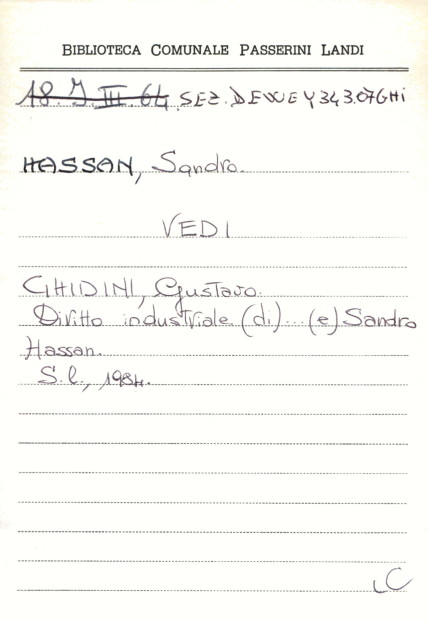 BIBLIOTECA COMUNALE PASSERINI LANDI
18. J. III. 64 SEZ. DEWEY 343.07GHi
HASSAN, Sandro.
VEDI
GHIDINI, Gustavo.
Diritto industriale (di)... (e) Sandro
Hassan.
S.l., 1984.